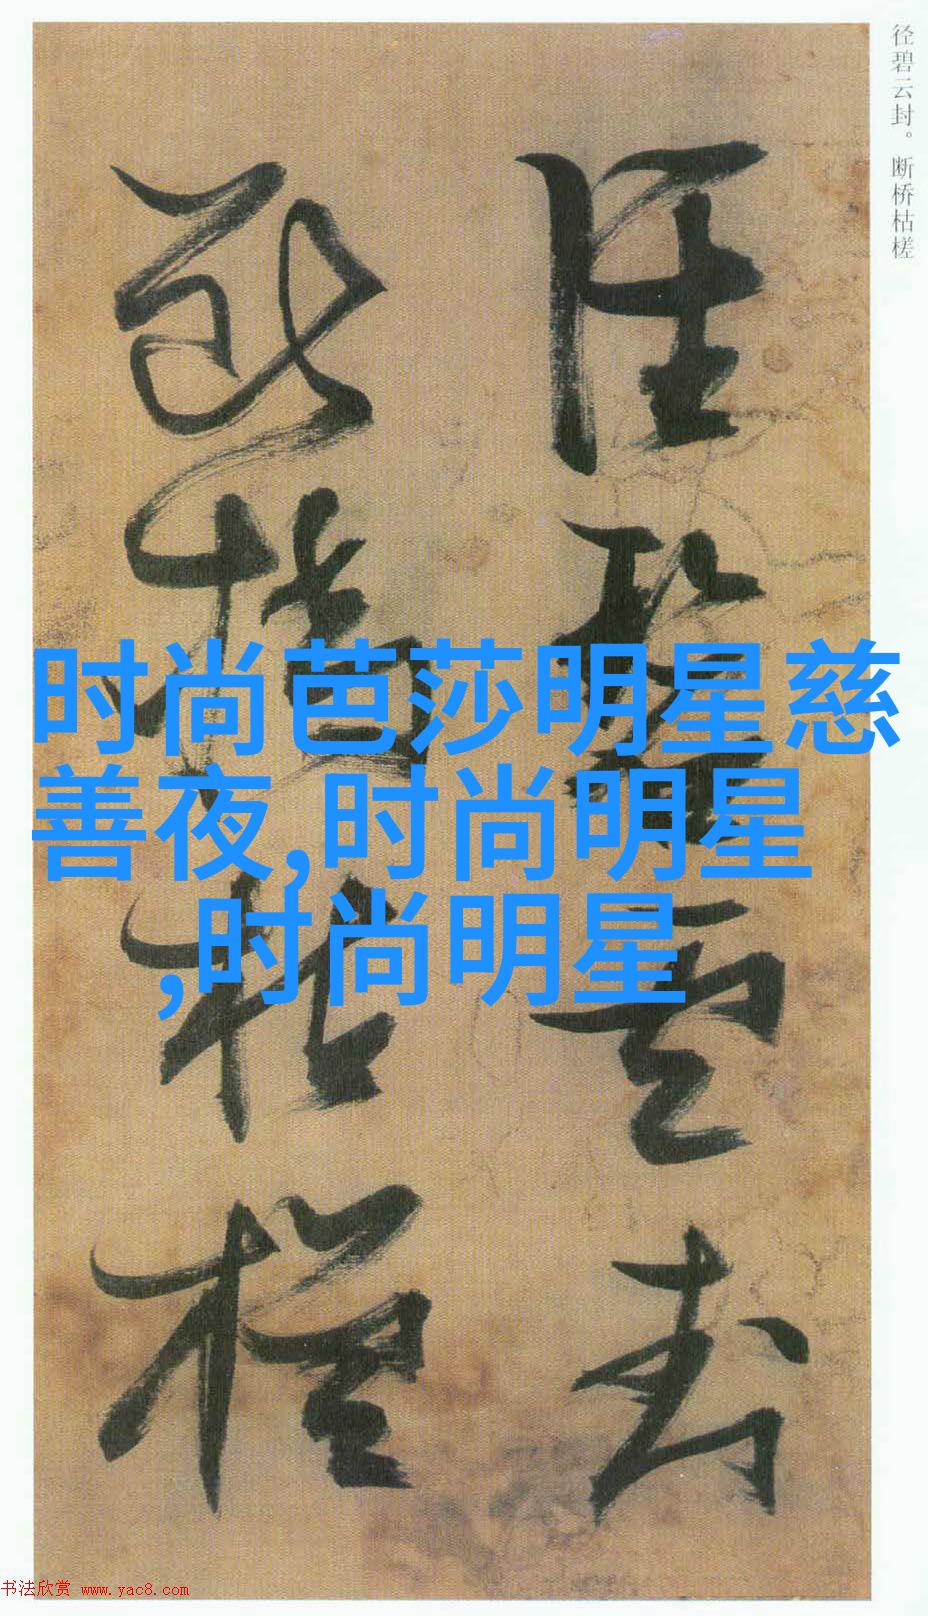 径碧云封。断桥枯槎
径碧云封
断桥枯槎
时尚芭莎明星慈
善夜,时尚明星
,时尚明星
书法欣赏 www.yac8.com